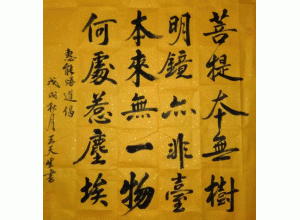 菩提本無樹
明鏡亦非臺
本來無一物
何處惹塵埃
惠能悟道偈
戊戌秋月王天生書